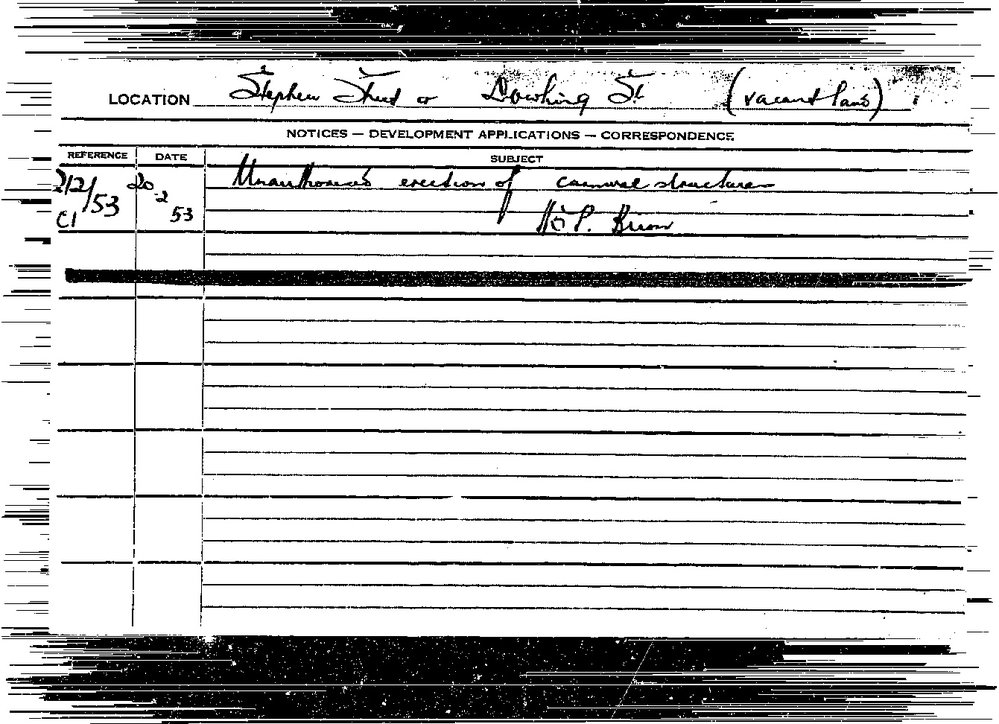 LOCATION Stephen Street or Dowling St. (vacant land)
NOTICES — DEVELOPMENT APPLICATIONS — CORRESPONDENCE
REFERENCE DATE SUBJECT
212/53 20 Unauthorised erection of carnival structures
C1 -2 53 P.